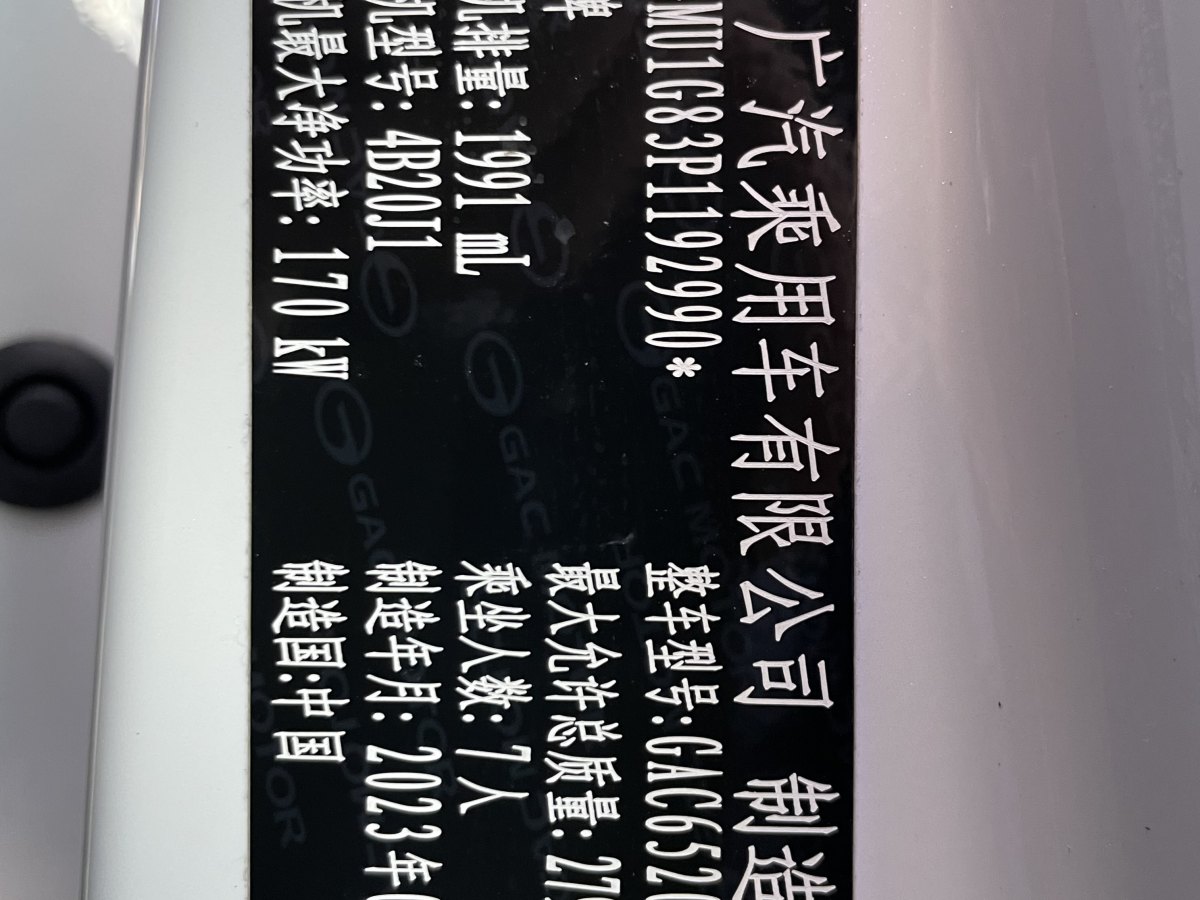 广汽乘用车有限公司 制造
MU1G83P1192990* 整车型号:GAC6520
牌 最大允许总质量: 27
机排量: 1991 mL 乘坐人数: 7人
机型号: 4B20J1 制造年月: 2023年
机最大净功率: 170 kW 制造国:中国
GAC MOTOR
GAC
GAC